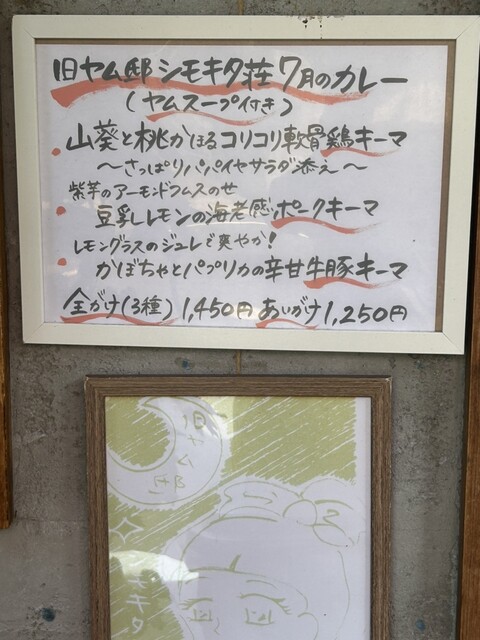 旧ヤム邸 シモキタ荘 7月のカレー
(ヤムスープ付き)
山葵と桃かほるコリコリ軟骨鶏キーマ
〜さっぱりパパイヤサラダ添え〜
紫芋のアーモンドフムスのせ
豆乳レモンの海老感ポークキーマ
レモングラスのジュレで爽やか!
かぼちゃとパプリカの辛甘牛豚キーマ
全がけ(3種) 1,450円 あいがけ 1,250円
旧ヤム邸
キタ